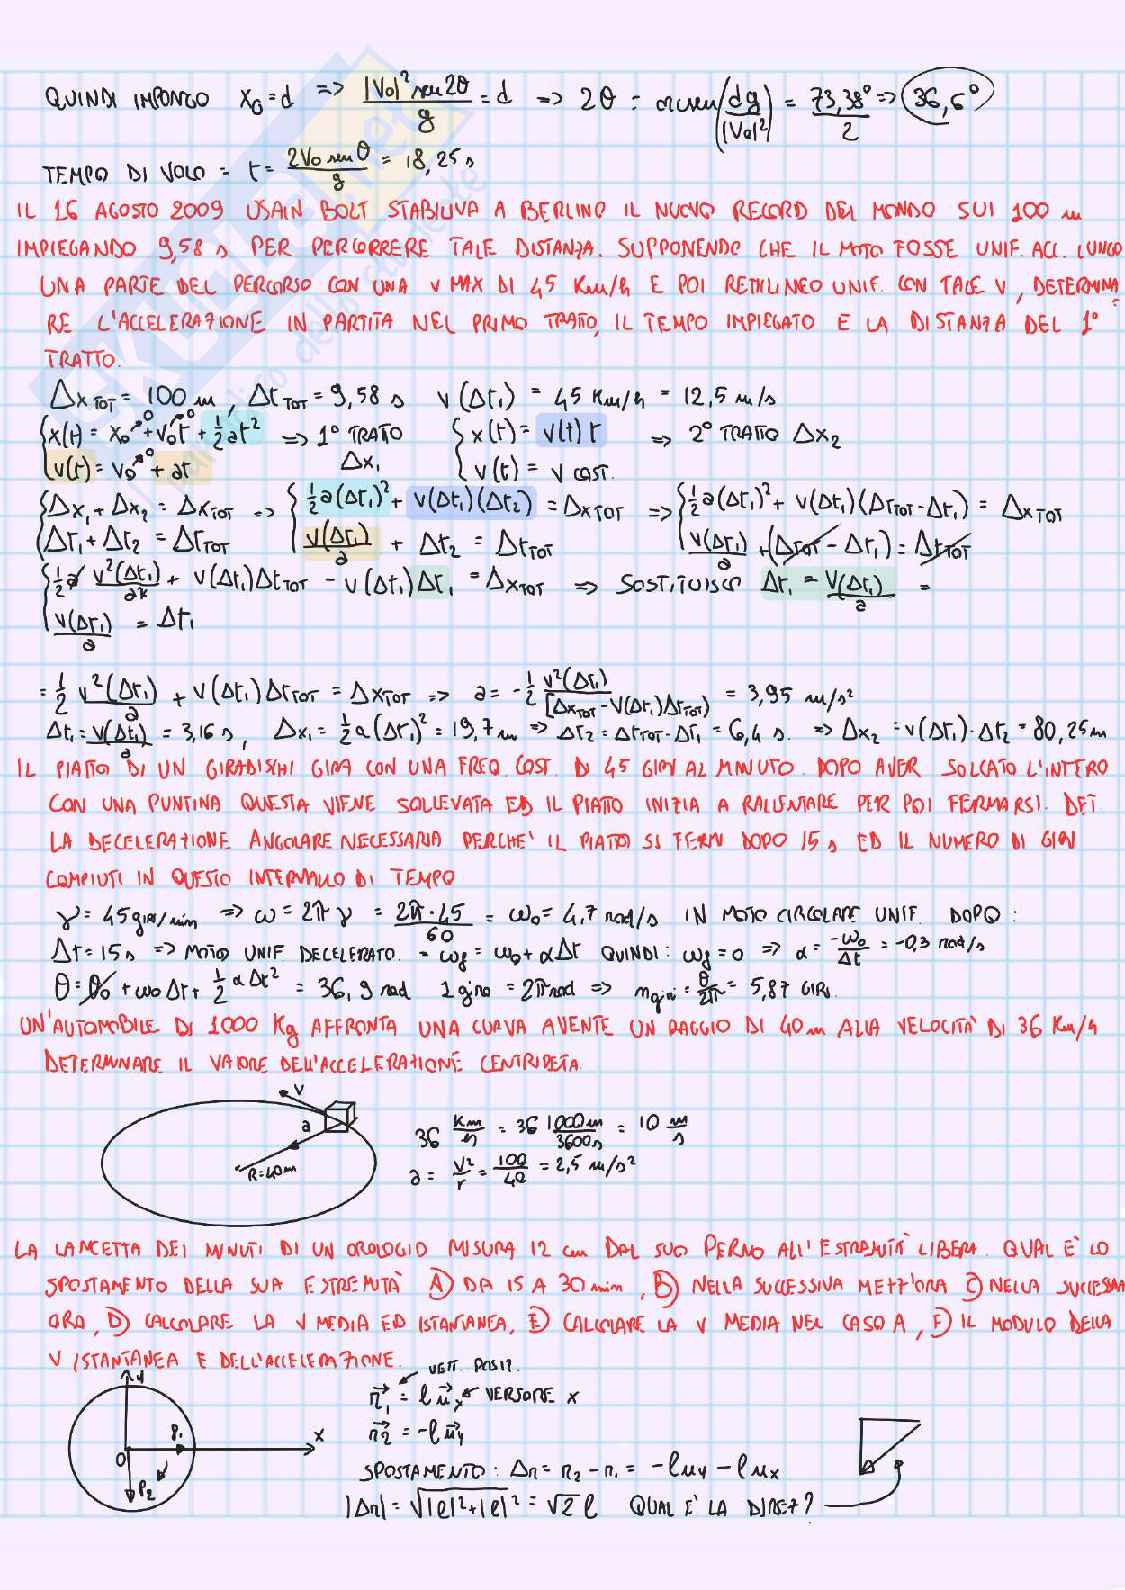 QUINDI IMPONGO x_G = d => |V0|² sen2θ / g = d => 2θ = arcsen(dg/|V0|²) = 73,38°/2 => 36,6°
TEMPO DI VOLO = t = 2V0 senθ / g = 18,25 s
IL 16 AGOSTO 2009 USAIN BOLT STABILIVA A BERLINO IL NUOVO RECORD DEL MONDO SUI 100 m
IMPIEGANDO 9,58 s PER PERCORRERE TALE DISTANZA. SUPPONENDO CHE IL MOTO FOSSE UNIF. ACC. LUNGO
UNA PARTE DEL PERCORSO CON UNA V MAX DI 45 Km/h E POI RETTILINEO UNIF. CON TALE V, DETERMINA
RE L'ACCELERAZIONE IN PARTITA NEL PRIMO TRATTO, IL TEMPO IMPIEGATO E LA DISTANZA DEL 1°
TRATTO.
Δx_TOT = 100 m, Δt_TOT = 9,58 s v(Δt1) = 45 Km/h = 12,5 m/s
x(t) = x0 + v0t + 1/2 at² => 1° TRATTO Δx1 x(t) = v(t) t => 2° TRATTO Δx2
v(t) = v0 + at v(t) = v COST.
Δx1 + Δx2 = Δx_TOT => 1/2 a(Δt1)² + v(Δt1)(Δt2) = Δx_TOT => 1/2 a(Δt1)² + v(Δt1)(Δt_TOT - Δt1) = Δx_TOT
Δt1 + Δt2 = Δt_TOT v(Δt1)/a + Δt2 = Δt_TOT v(Δt1)/a + (Δt_TOT - Δt1) = Δt_TOT
1/2 a v²(Δt1)/a² + v(Δt1)Δt_TOT - v(Δt1)Δt1 = Δx_TOT => SOSTITUISCO Δt1 = v(Δt1)/a =
v(Δt1)/a = Δt1
= 1/2 v²(Δt1)/a + v(Δt1)Δt_TOT = Δx_TOT => a = -1/2 v²(Δt1)/[Δx_TOT - v(Δt1)Δt_TOT) = 3,95 m/s²
Δt1 = v(Δt1)/a = 3,16 s, Δx1 = 1/2 a(Δt1)² = 19,7 m => Δt2 = Δt_TOT - Δt1 = 6,4 s. => Δx2 = v(Δt1)·Δt2 = 80,25 m
IL PIATTO DI UN GIRADISCHI GIRA CON UNA FREQ. COST. DI 45 GIRI AL MINUTO. DOPO AVER SOLCATO L'INTERO
CON UNA PUNTINA QUESTA VIENE SOLLEVATA ED IL PIATTO INIZIA A RALLENTARE PER POI FERMARSI. DET
LA DECELERAZIONE ANGOLARE NECESSARIA PERCHE' IL PIATTO SI FERMI DOPO 15 s ED IL NUMERO DI GIRI
COMPIUTI IN QUESTO INTERVALLO DI TEMPO
γ = 45 giri/min => ω = 2πγ = 2π·45/60 = ω0 = 4,7 rad/s IN MOTO CIRCOLARE UNIF. DOPO:
Δt = 15 s => MOTO UNIF DECELERATO. = ωf = ω0 + αΔt QUINDI: ωf = 0 => α = -ω0/Δt = -0,3 rad/s
θ = θ0 + ω0Δt + 1/2 αΔt² = 36,9 rad 1 giro = 2π rad => n giri = θ/2π = 5,87 GIRI.
UN'AUTOMOBILE DI 1000 Kg AFFRONTA UNA CURVA AVENTE UN RAGGIO DI 40 m ALLA VELOCITA' DI 36 Km/h
DETERMINARE IL VALORE DELL'ACCELERAZIONE CENTRIPETA.
v
a
R=40m
36 Km/h = 36 1000m/3600s = 10 m/s
a = v²/r = 100/40 = 2,5 m/s²
LA LANCETTA DEI MINUTI DI UN OROLOGIO MISURA 12 cm DAL SUO PERNO ALL'ESTREMITA' LIBERA. QUAL E' LO
SPOSTAMENTO DELLA SUA ESTREMITA' A) DA 15 A 30 min, B) NELLA SUCCESSIVA MEZZ'ORA C) NELLA SUCCESSIVA
ORA, D) CALCOLARE LA V MEDIA ED ISTANTANEA, E) CALCOLARE LA V MEDIA NEL CASO A, F) IL MODULO DELLA
V ISTANTANEA E DELL'ACCELERAZIONE.
VETT. POSIZ.
y
r1 = l ux VERSORE x
P1
x
O
P2
r2 = -l uy
SPOSTAMENTO: Δr = r2 - r1 = -l uy - l ux
|Δr| = √|l|²+|l|² = √2 l QUAL E' LA DIREZ?